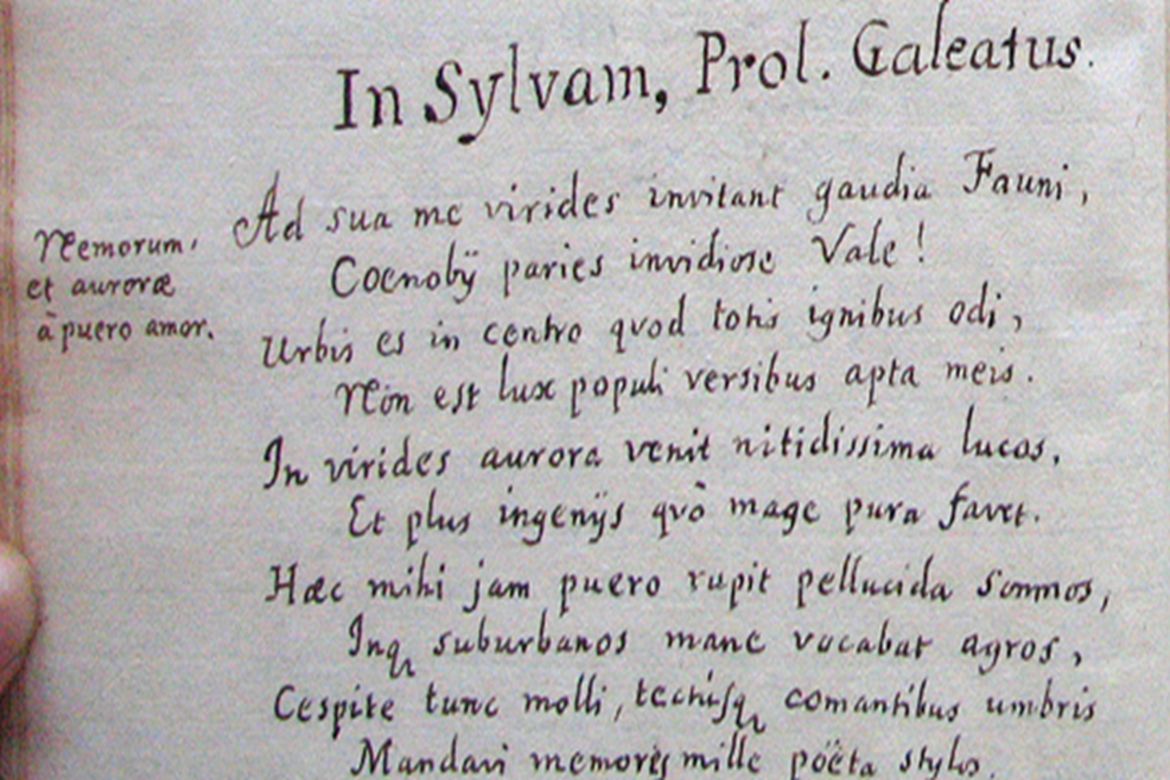 In Sylvam, Prol. Galeatus.
Nemorum,
et auroræ
à puero amor.
Ad sua me virides invitant gaudia Fauni,
Coenobÿ paries invidiose Vale!
Urbis es in centro quod totis ignibus odi,
Non est lux populi versibus apta meis.
In virides aurora venit nitidissima lucos,
Et plus ingenÿs quò mage pura favet.
Hæc mihi jam puero rupit pellucida somnos,
Inq suburbanos mane vocabat agros,
Cespite tunc molli, tectisq comantibus umbris
Mandavi memores mille poëta stylos.